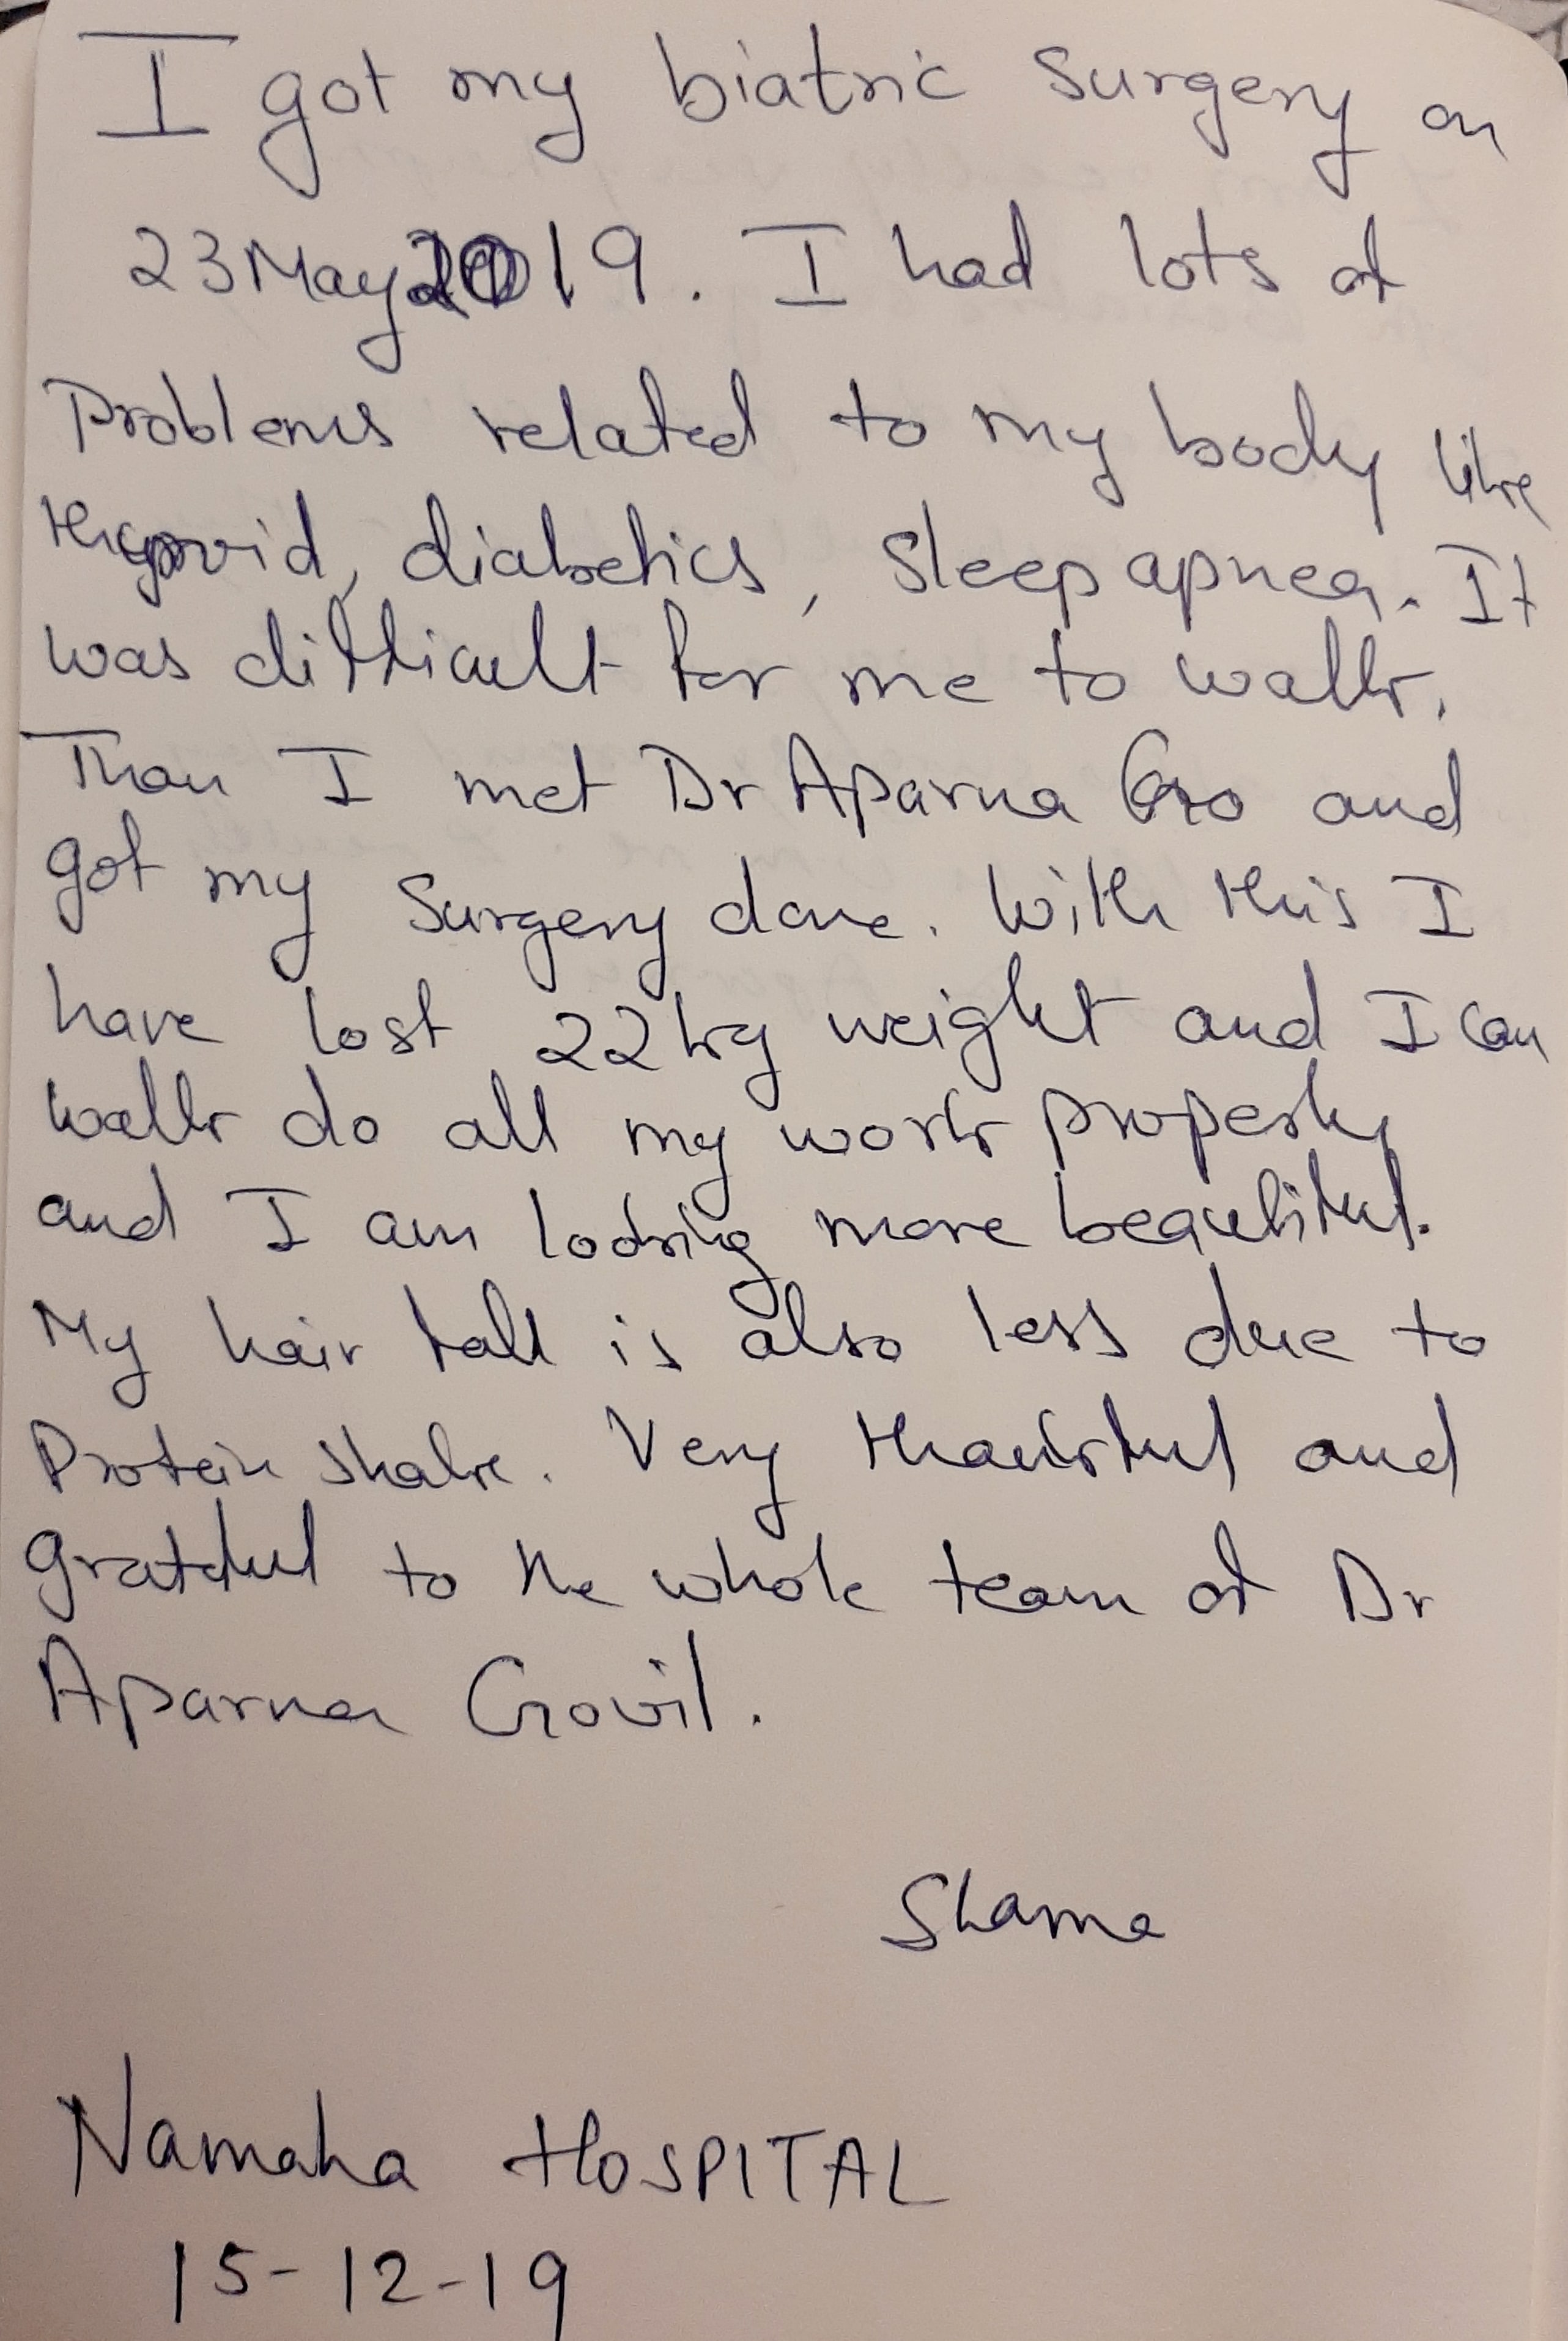 I got my biatric surgery on
23 May 2019. I had lots of
Problems related to my body like
thyroid, diabetics, Sleep apnea. It
was difficult for me to walk.
Than I met Dr Aparna Go and
got my Surgery done. With this I
have lost 22kg weight and I can
walk do all my work properly
and I am looking more beautiful.
My hair fall is also less due to
Protein shake. Very thankful and
grateful to the whole team of Dr
Aparna Govil.
Shama
Namaha HOSPITAL
15-12-19